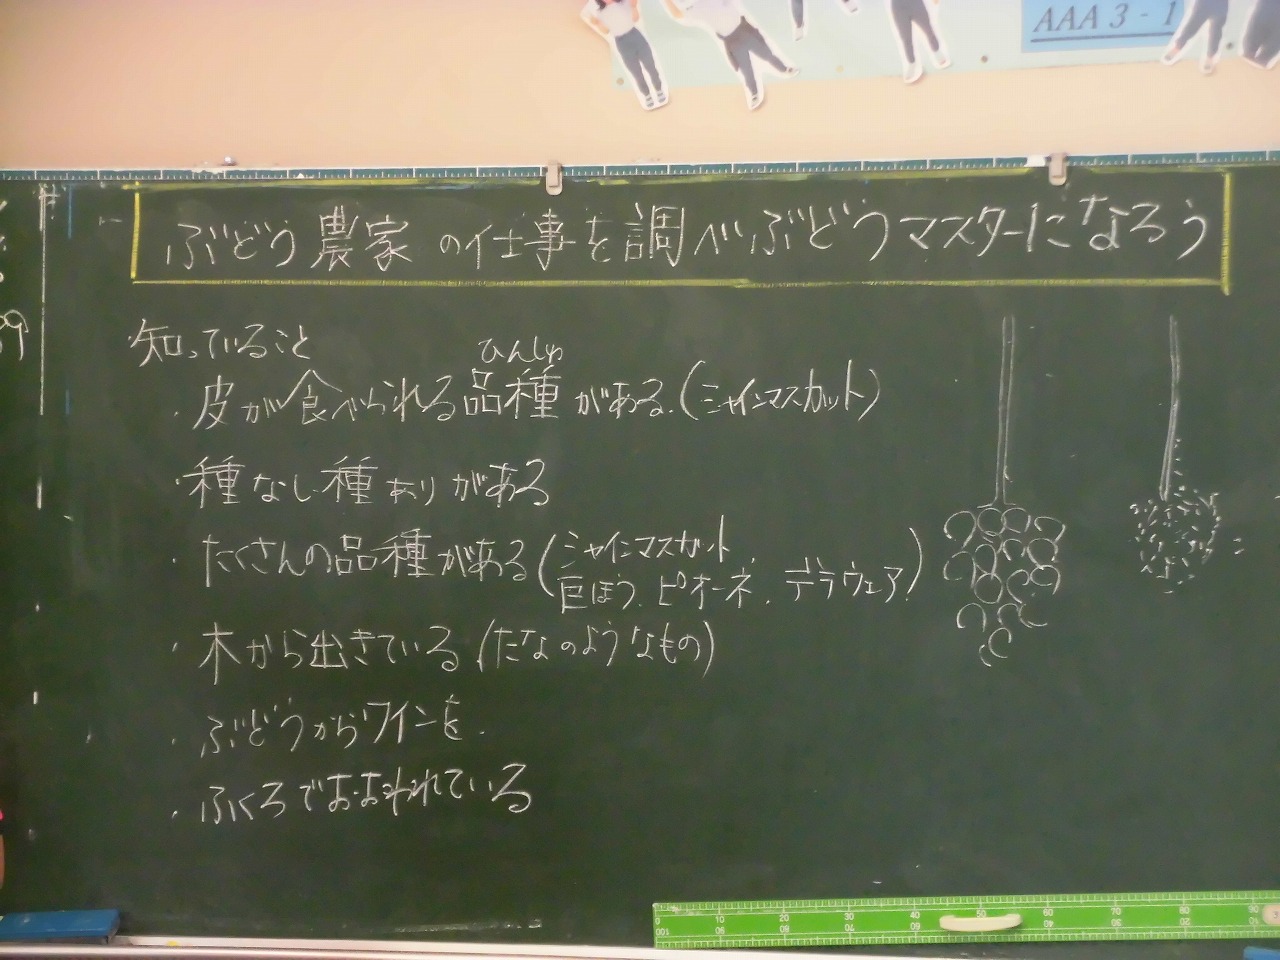 AAA 3 - 1
ぶどう農家の仕事を調べぶどうマスターになろう
・知っていること
ひんしゅ
・皮が食べられる品種がある.(シャインマスカット)
・種なし種ありがある
・たくさんの品種がある(シャインマスカット
巨ぼう、ピオーネ、デラウェア)
・木から出きている(たなのようなもの)
・ぶどうからワインを.
・ふくろでおおわれている
0 10 20 30 40 50 60 70 80 90
100 90 80 70 60 40 30 20 10